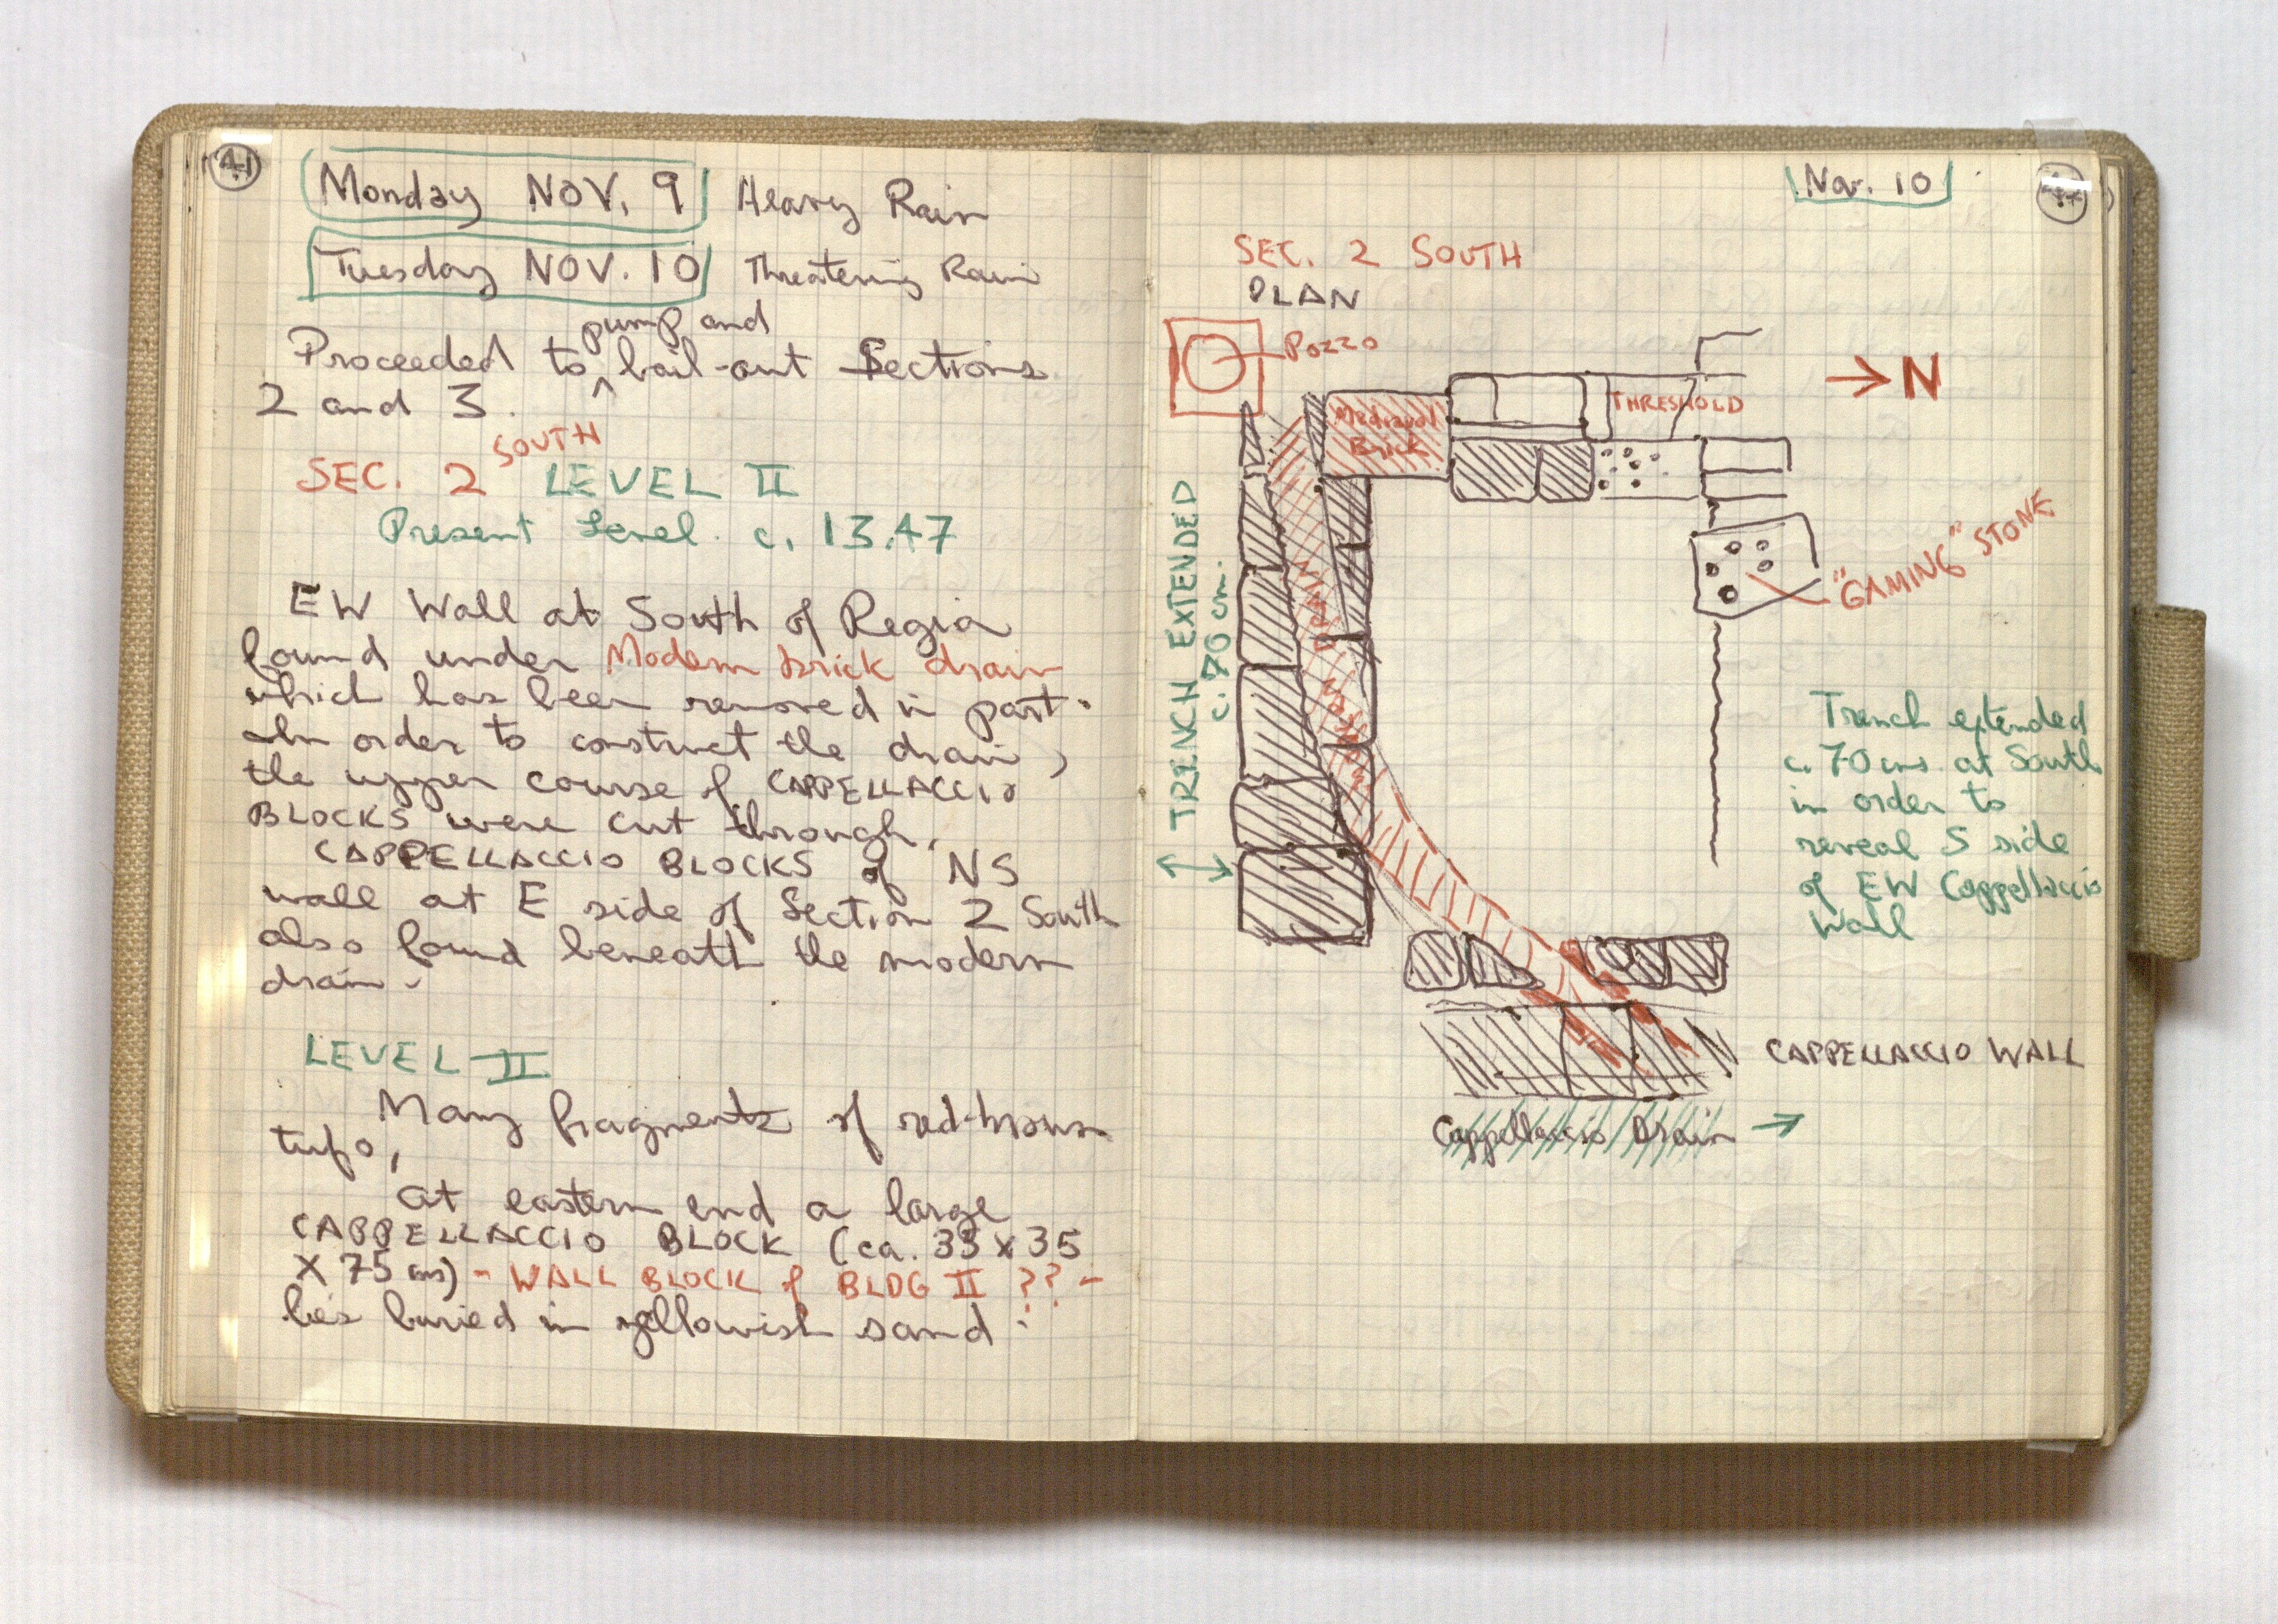 41
Monday NOV. 9 Heavy Rain
Tuesday NOV. 10 Threatening Rain
pump and
Proceeded to bail-out Sections
2 and 3.
SOUTH
SEC. 2 LEVEL II
Present Level c. 13.47
EW Wall at South of Regia
found under Modern brick drain
which has been removed in part.
In order to construct the drain,
the upper course of CAPPELLACCIO
BLOCKS were cut through.
CAPPELLACCIO BLOCKS of NS
wall at E side of Section 2 South
also found beneath the modern
drain.
LEVEL II
Many fragments of red-brown
tufo,
at eastern end a large
CAPPELLACCIO BLOCK (ca. 35 x 35
X 75 cms) - WALL BLOCK of BLDG II ?? -
lies buried in yellowish sand.
Nov. 10
SEC. 2 SOUTH
PLAN
Pozzo
N
THRESHOLD
Medieval
Brick
"GAMING" STONE
TRENCH EXTENDED
c. 70 cm.
DRAIN
Trench extended
c. 70 cms. at South
in order to
reveal S side
of EW Cappellaccio
Wall
CAPPELLACCIO WALL
Cappellaccio Drain